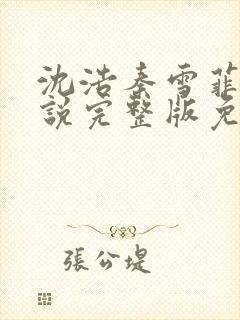 沈浩秦雪菲
說完整版免
張公堤